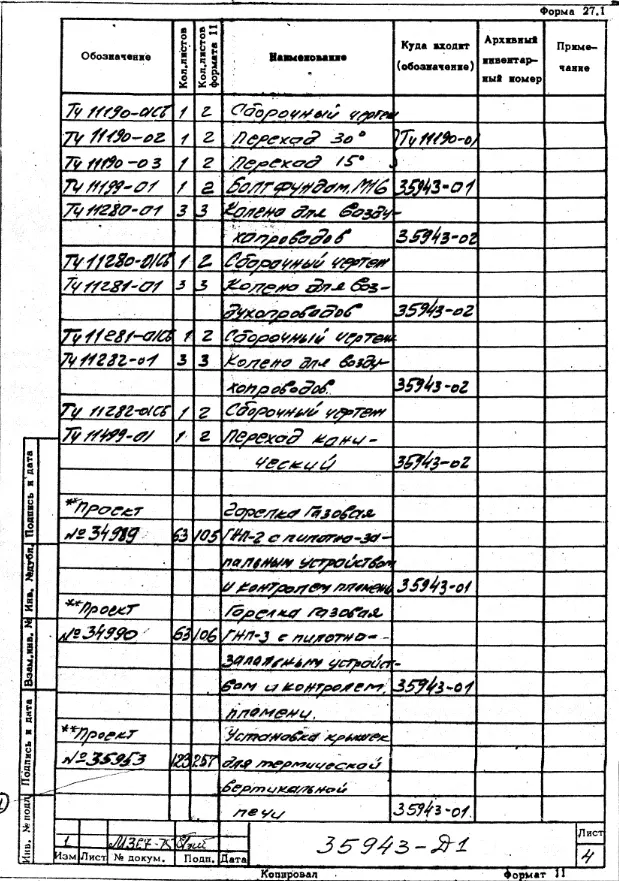 Форма 27.1
Обозначение Кол.листов Кол.листов формата 11 Наименование Куда входит (обозначение) Архивный инвентарный номер Примечание
Ту 11190-01СБ 1 2 Сборочный чертеж
Ту 11190-02 1 2 Переход 30° Ту 11190-01
Ту 11190-03 1 2 Переход 15°
Ту 11199-01 1 2 Болт фундам. М16 35943-01
Ту 11280-01 3 3 Колено для возду-
хопроводов 35943-02
Ту 11280-01СБ 1 2 Сборочный чертеж
Ту 11281-01 3 3 Колено для воз-
духопроводов 35943-02
Ту 11281-01СБ 1 2 Сборочный чертеж
Ту 11282-01 3 3 Колено для возду-
хопроводов. 35943-02
Ту 11282-01СБ 1 2 Сборочный чертеж
Ту 11499-01 1 2 Переход кони-
ческий 35943-02
**Проект Горелка газовая
№ 34989 63 105 ГНП-2 с пилотно-за-
пальным устройством
и контролем пламени 35943-01
**Проект Горелка газовая
№ 34990 63 106 ГНП-3 с пилотно-
запальным устройст-
вом и контролем 35943-01
пламени.
**Проект Установка крышек
№ 35953 123 257 для термической
вертикальной
печи 35943-01.
Подпись и дата
Инв. № дубл.
Взам.инв. №
Подпись и дата
Инв. № подл
1
Изм Лист № докум. Подп. Дата
35943-Д1
Лист
4
Копировал Формат 11